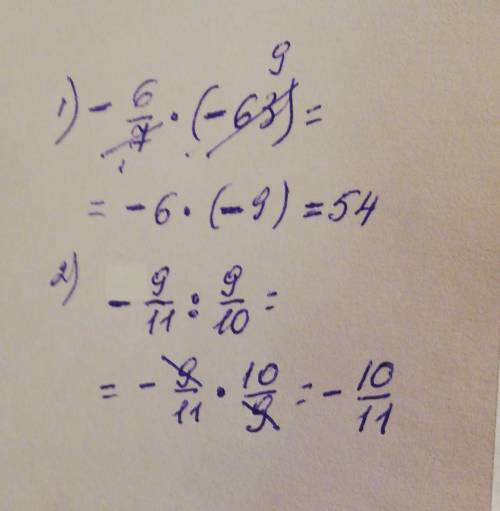 9
1) - 6/7 · (-63) =
= -6 · (-9) = 54
2) - 9/11 : 9/10 =
= - 9/11 · 10/9 = - 10/11